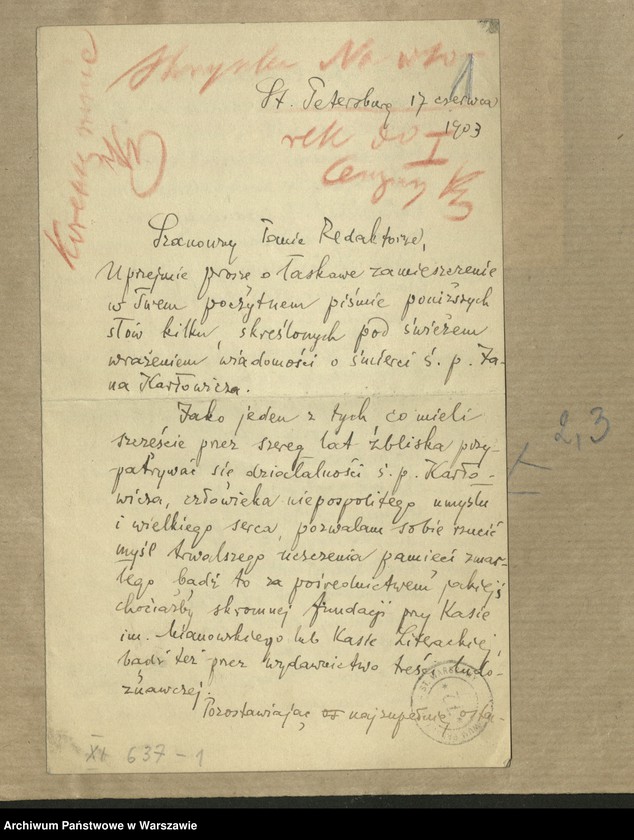 St. Petersburg 17 czerwca
1903
rek do I
Szanowny Panie Redaktorze,
Uprzejmie proszę o łaskawe zamieszczenie
w Swem poczytnem piśmie poniższych
słów kilku, skreślonych pod świeżem
wrażeniem wiadomości o śmierci ś. p. Ja-
na Karłowicza.
Jako jeden z tych co mieli
szczęście przez szereg lat zbliska przy-
patrywać się działalności ś. p. Karło-
wicza, człowieka niepospolitego umysłu
i wielkiego serca, pozwalam sobie rzucić
myśl trwalszego uczczenia pamięci zmar-
łego bądź to za pośrednictwem jakiejś
chociażby skromnej fundacji przy Kasie
im. Mianowskiego lub Kasie Literackiej,
bądź też przez wydawnictwo treści ludo-
znawczej.
Pozostawiając najzupełniej osta-
2,3
XI 637-1
Archiwum Państwowe w Warszawie